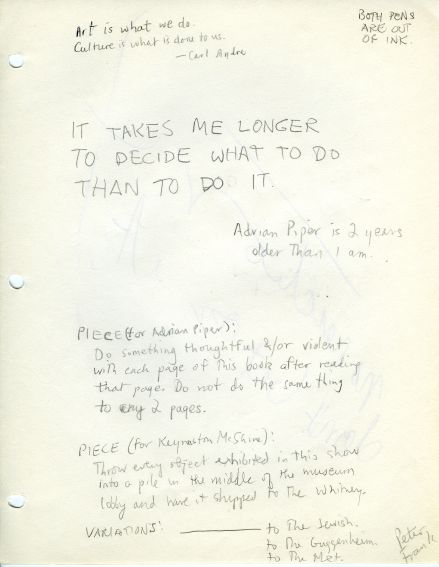 Art is what we do.
Culture is what is done to us.
—Carl Andre
BOTH PENS
ARE OUT
OF INK.
IT TAKES ME LONGER
TO DECIDE WHAT TO DO
THAN TO DO IT.
Adrian Piper is 2 years
older than I am.
PIECE (for Adrian Piper):
Do something thoughtful &/or violent
with each page of this book after reading
that page. Do not do the same thing
to any 2 pages.
PIECE (for Keynaston McShine):
Throw every object exhibited in this show
into a pile in the middle of the museum
lobby and have it shipped to the Whitney.
VARIATIONS: ———— to The Jewish.
to The Guggenheim.
to The Met.
Peter
Frank